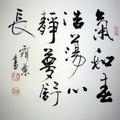 氣和春
浩蕩心
靜夢舒
長